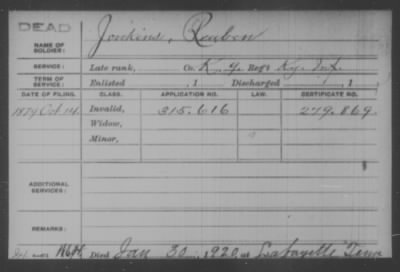 DEAD
NAME OF SOLDIER: Jenkins, Reuben
SERVICE: Late rank, Co. K, 9 Reg't Ky. Inf.
TERM OF SERVICE: Enlisted , 1 Discharged , 1
DATE OF FILING. CLASS. APPLICATION NO. LAW. CERTIFICATE NO.
1879 Oct. 14. Invalid, 315.616 279.869
Widow,
Minor,
ADDITIONAL SERVICES:
REMARKS:
Died Jan 30, 1920, at Lafayette Tenn